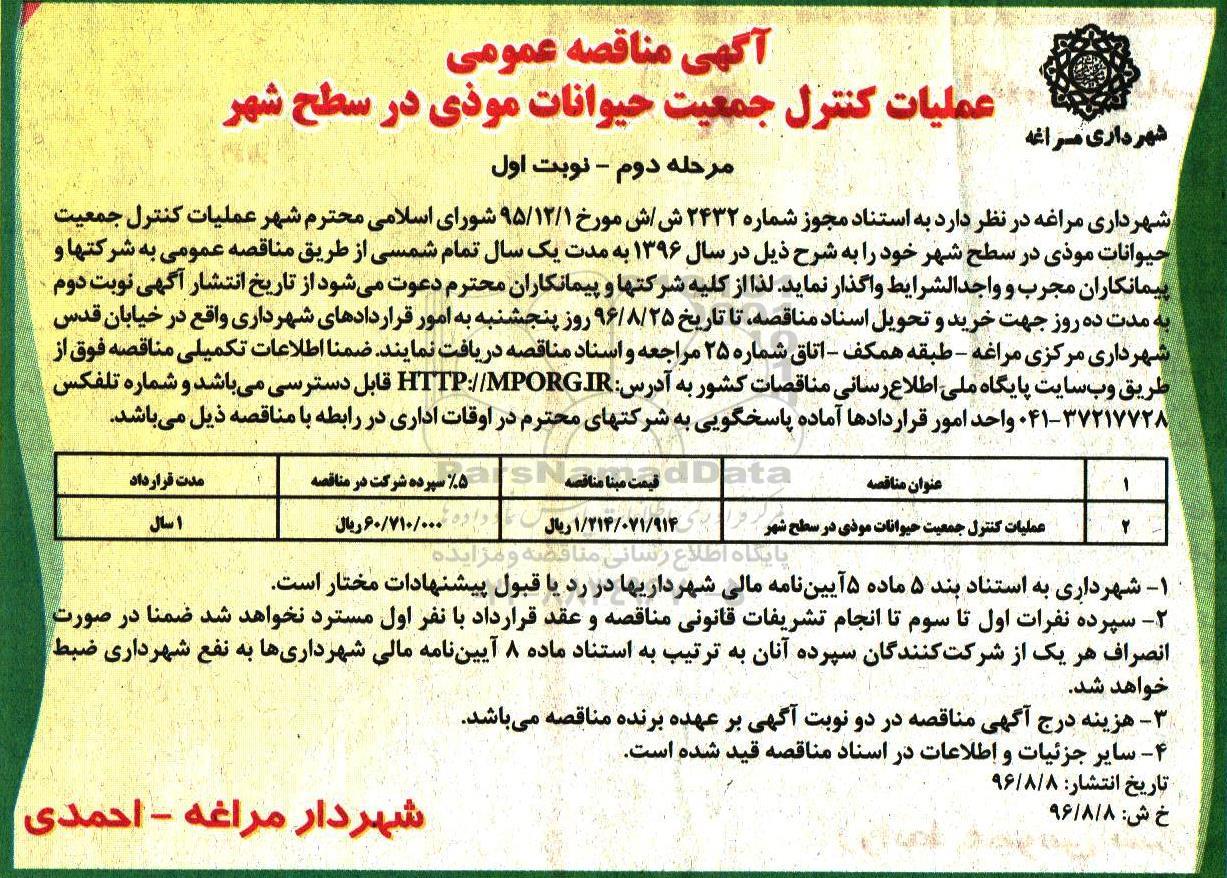 آگهی مناقصه عمومی
عملیات کنترل جمعیت حیوانات موذی در سطح شهر
شهرداری مراغه
مرحله دوم - نوبت اول
شهرداری مراغه در نظر دارد به استناد مجوز شماره ۲۴۳۲ ش/ش مورخ ۹۵/۱۲/۱ شورای اسلامی محترم شهر عملیات کنترل جمعیت
حیوانات موذی در سطح شهر خود را به شرح ذیل در سال ۱۳۹۶ به مدت یک سال تمام شمسی از طریق مناقصه عمومی به شرکتها و
پیمانکاران مجرب و واجدالشرایط واگذار نماید. لذا از کلیه شرکتها و پیمانکاران محترم دعوت می‌شود از تاریخ انتشار آگهی نوبت دوم
به مدت ده روز جهت خرید و تحویل اسناد مناقصه، تا تاریخ ۹۶/۸/۲۵ روز پنجشنبه به امور قراردادهای شهرداری واقع در خیابان قدس
شهرداری مرکزی مراغه - طبقه همکف - اتاق شماره ۲۵ مراجعه و اسناد مناقصه دریافت نمایند. ضمنا اطلاعات تکمیلی مناقصه فوق از
طریق وب‌سایت پایگاه ملی اطلاع‌رسانی مناقصات کشور به آدرس: HTTP://MPORG.IR قابل دسترسی می‌باشد و شماره تلفکس
۰۴۱-۳۷۲۱۷۷۲۸ واحد امور قراردادها آماده پاسخگویی به شرکتهای محترم در اوقات اداری در رابطه با مناقصه ذیل می‌باشد.
ParsNamadData
۱ عنوان مناقصه قیمت مبنا مناقصه ۵٪ سپرده شرکت در مناقصه مدت قرارداد
۲ عملیات کنترل جمعیت حیوانات موذی در سطح شهر ۱/۲۱۴/۰۷۱/۹۱۴ ریال ۶۰/۷۱۰/۰۰۰ ریال ۱ سال
پایگاه اطلاع رسانی مناقصه و مزایده
۱- شهرداری به استناد بند ۵ ماده ۵ آیین‌نامه مالی شهرداریها در رد یا قبول پیشنهادات مختار است.
۲- سپرده نفرات اول تا سوم تا انجام تشریفات قانونی مناقصه و عقد قرارداد با نفر اول مسترد نخواهد شد ضمنا در صورت
انصراف هر یک از شرکت‌کنندگان سپرده آنان به ترتیب به استناد ماده ۸ آیین‌نامه مالی شهرداری‌ها به نفع شهرداری ضبط
خواهد شد.
۳- هزینه درج آگهی مناقصه در دو نوبت آگهی بر عهده برنده مناقصه می‌باشد.
۴- سایر جزئیات و اطلاعات در اسناد مناقصه قید شده است.
تاریخ انتشار: ۹۶/۸/۸
خ ش: ۹۶/۸/۸
شهردار مراغه - احمدی